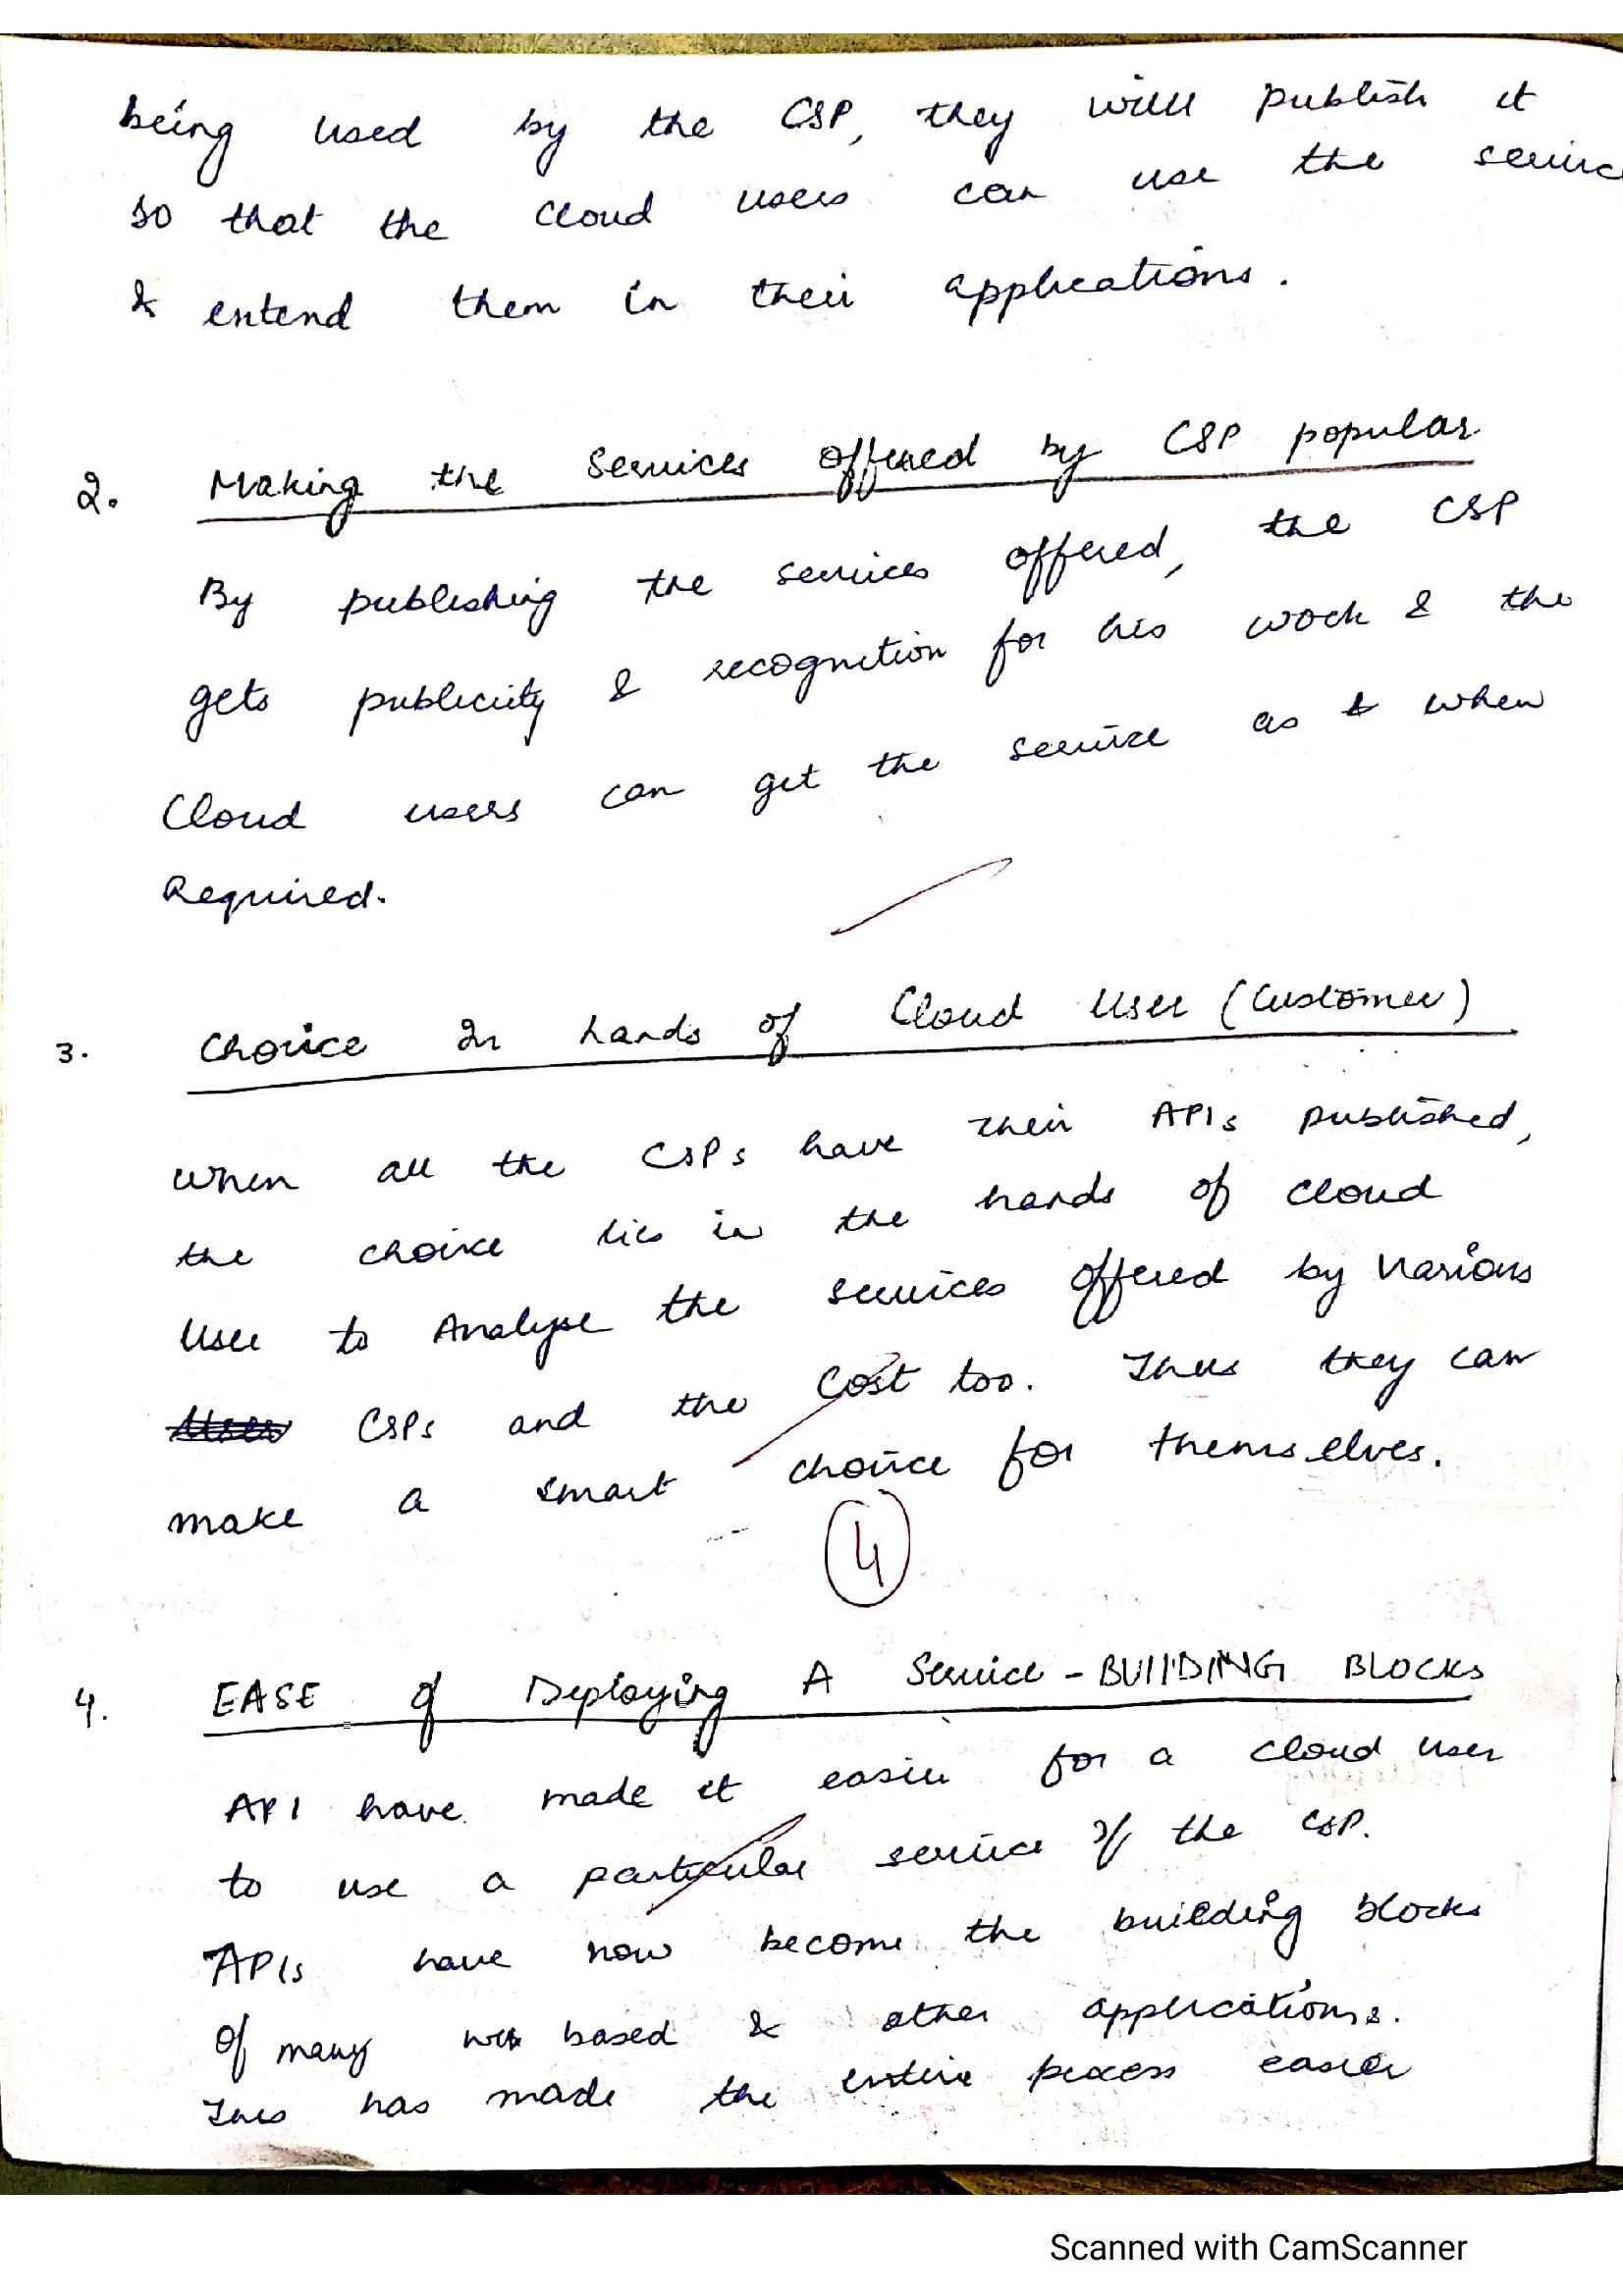 being used by the CSP, they will publish it
so that the cloud users can use the servic
& extend them in their applications.
2. Making the Services offered by CSP popular
By publishing the services offered, the CSP
gets publicity & recognition for his work & the
Cloud users can get the service as & when
Required.
3. Choice In hands of Cloud User (Customer)
When all the CSPs have their APIs published,
the choice lies in the hands of cloud
User to Analyse the services offered by various
CSPs and the Cost too. Thus they can
make a smart choice for themselves.
4
4. EASE of Deploying A Service - BUILDING BLOCKS
API have made it easier for a cloud user
to use a particular service of the CSP.
APIs have now become the building blocks
Of many web based & other applications.
This has made the entire process easier
Scanned with CamScanner